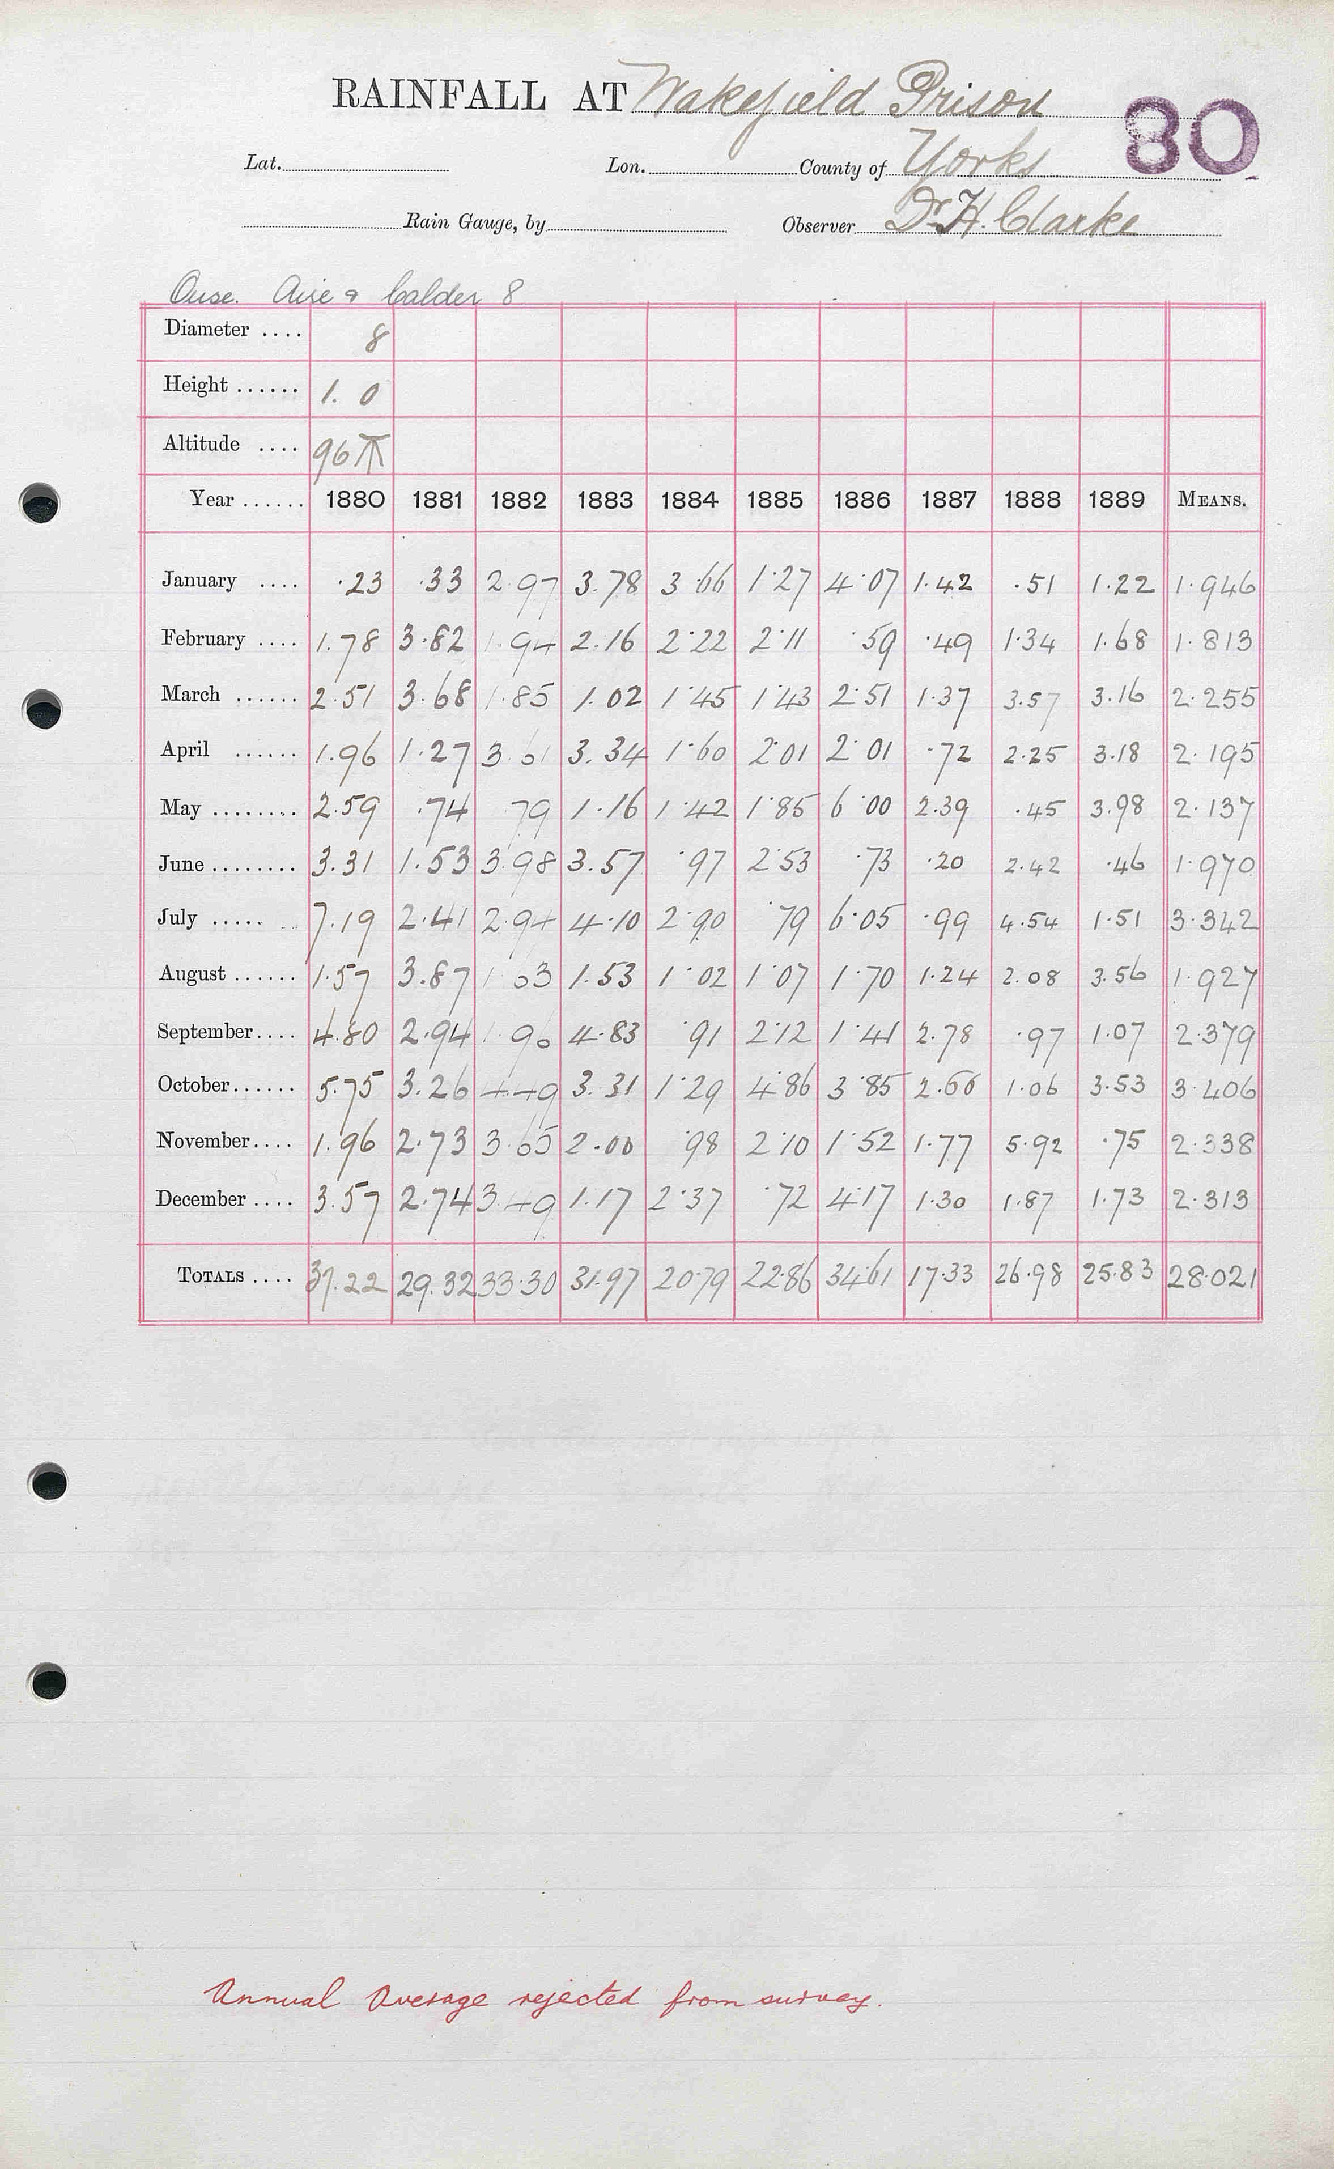 RAINFALL AT Wakefield Prison 80
Lat. Lon. County of Yorks
Rain Gauge, by Observer Dr. H. Clarke
Ouse. Aire & Calder 8
Diameter .... 8
Height ...... 1. 0
Altitude .... 96
Year ...... 1880 1881 1882 1883 1884 1885 1886 1887 1888 1889 MEANS.
January .... ·23 ·33 2·97 3·78 3·66 1·27 4·07 1·42 ·51 1·22 1·946
February .... 1·78 3·82 1·94 2·16 2·22 2·11 ·59 ·49 1·34 1·68 1·813
March ...... 2·51 3·68 1·85 1·02 1·45 1·43 2·51 1·37 3·57 3·16 2·255
April ...... 1·96 1·27 3·61 3·34 1·60 2·01 2·01 ·72 2·25 3·18 2·195
May ........ 2·59 ·74 79 1·16 1·42 1·85 6·00 2·39 ·45 3·98 2·137
June ........ 3·31 1·53 3·98 3·57 ·97 2·53 ·73 ·20 2·42 ·46 1·970
July ..... .. 7·19 2·41 2·94 4·10 2·90 ·79 6·05 ·99 4·54 1·51 3·342
August ...... 1·57 3·87 1·63 1·53 1·02 1·07 1·70 1·24 2·08 3·56 1·927
September .... 4·80 2·94 1·96 4·83 ·91 2·12 1·41 2·78 ·97 1·07 2·379
October ...... 5·75 3·26 4·49 3·31 1·29 4·86 3·85 2·66 1·06 3·53 3·406
November .... 1·96 2·73 3·65 2·00 ·98 2·10 1·52 1·77 5·92 ·75 2·338
December .... 3·57 2·74 3·49 1·17 2·37 ·72 4·17 1·30 1·87 1·73 2·313
TOTALS .... 37·22 29·32 33·30 31·97 20·79 22·86 34·61 17·33 26·98 25·83 28·021
Annual Average rejected from survey.